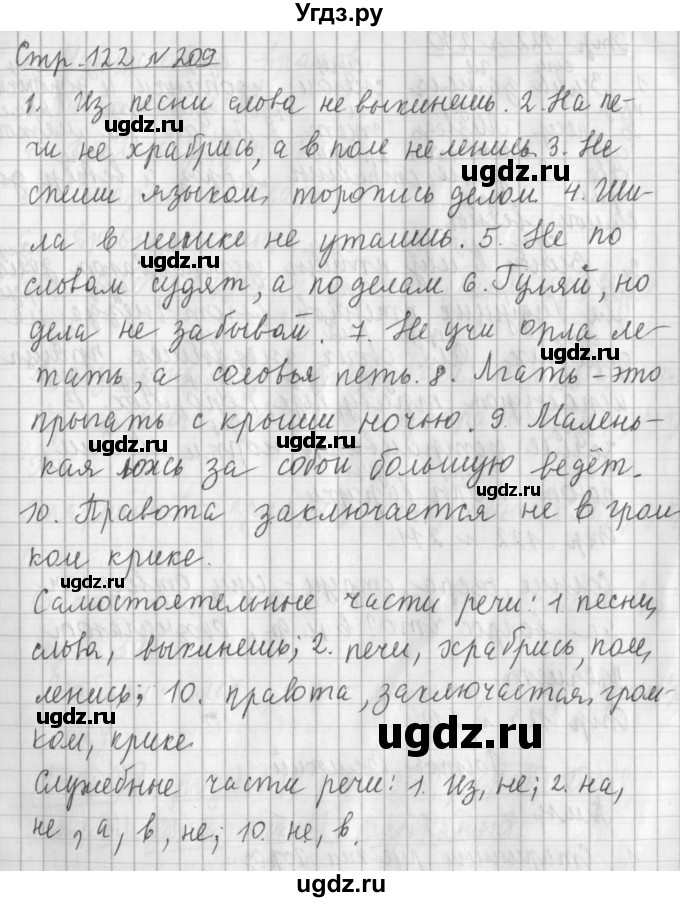 Угдз.ру
Стр. 122 № 209
1. Из песни слова не выкинешь. 2. На пе-
ugdz.ru
чи не храбрись, а в поле не ленись. 3. Не
ugdz.ru
спеши языком, торопись делом 4. Ши-
ugdz.ru
ла в мешке не утаишь. 5. Не по
ugdz.ru
словам судят, а по делам 6. Гуляй, но
дела не забывай. 7. Не учи орла ле-
ugdz.ru
тать, а соловья петь. 8. Лгать - это
прыгать с крыши ночью. 9. Малень-
ugdz.ru ugdz.ru
кая ложь за собой большую ведёт.
ugdz.ru
10. Правота заключается не в гром-
ком крике.
ugdz.ru
Самостоятельные части речи: 1. песни,
слова, выкинешь; 2. печи, храбрись, поле,
ugdz.ru
ленись; 10. правота, заключается, гром-
ugdz.ru
ком, крике.
ugdz.ru
Служебные части речи: 1. Из, не; 2. на,
не, а, в, не; 10. не, в.
ugdz.ru
ugdz.ru